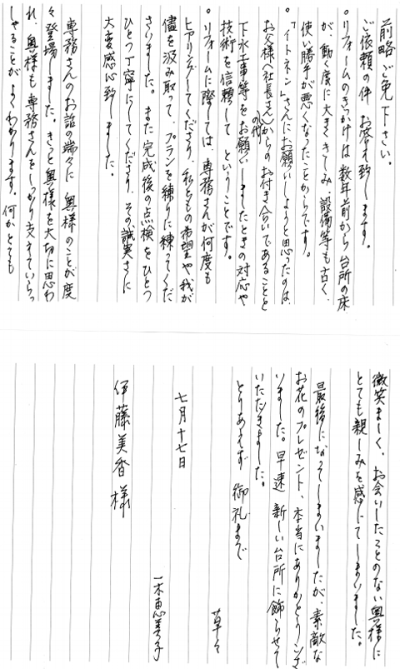 前略ご免下さい。
ご依頼の件 お答え致します。
○リフォームのきっかけは数年前から台所の床
が、動く度に大きくきしみ、設備等も古く、
使い勝手が悪くなったことからです。
○「イトネン」さんにお願いしようと思ったのは
お父様(社長さん)の代からのお付き合いであることと
下水工事等をお願いしましたときの対応や
技術を信頼して、ということです。
○リフォームに際しては、専務さんが何度も
ヒアリングしてくださり、私どもの希望や我が
儘を汲み取って、プランを練りに練ってくだ
さいました。また完成後の点検をひとつ
ひとつ丁寧にしてくださり、その誠実さに
大変感心致しました。
専務さんのお話の端々に 奥様のことが度
々登場しました。きっと奥様を大切に思わ
れ、奥様も専務さんをしっかり支えていらっ
しゃることが よくわかります。何かとても
微笑ましく、お会いしたことのない奥様に
とても親しみを感じてしまいました。
最後になってしまいましたが、素敵な
お花のプレゼント、本当にありがとうござ
いました。早速 新しい台所に飾らせて
いただきました。
とりあえず 御礼まで
草々
七月十七日
一木恵美子
伊藤美香様